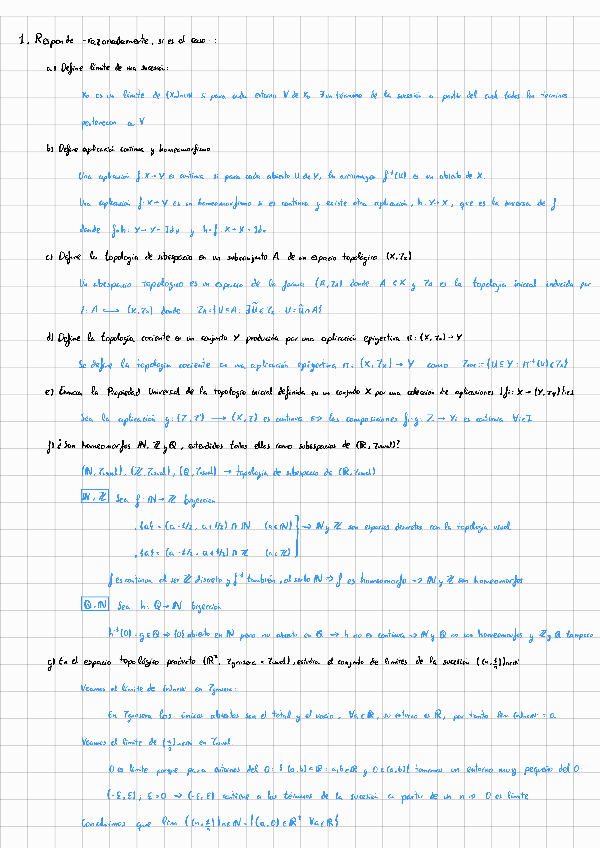 1. Responde -razonadamente, si es el caso-:
a) Define límite de una sucesión:
x₀ es un límite de {xₙ}n∈ℕ si para cada entorno V de x₀ ∃ un término de la sucesión a partir del cual todos los términos
pertenecen a V
b) Define aplicación continua y homeomorfismo
Una aplicación f: X→Y es continua si para cada abierto U de Y, la antiimagen f⁻¹(U) es un abierto de X.
Una aplicación f: X→Y es un homeomorfismo si es continua y existe otra aplicación, h: Y→X, que es la inversa de f
donde f∘h: Y→Y = Id y h∘f: X→X = Id
c) Define la topología de subespacio en un subconjunto A de un espacio topológico (X, τ)
Un subespacio topológico es un espacio de la forma (A, τ) donde A ⊂ X y τ es la topología inicial inducida por
i: A ⟶ (X, τ) donde τ = {U ⊂ A: ∃Ũ ∈ τ, U = Ũ ∩ A}
d) Define la topología cociente en un conjunto Y producida por una aplicación epiyectiva π: (X, τ) → Y
Se define la topología cociente en una aplicación epiyectiva π: (X, τ) → Y como τ = {U ⊂ Y: π⁻¹(U) ∈ τ}
e) Enuncia la Propiedad Universal de la topología inicial definida en un conjunto X por una colección de aplicaciones {fᵢ: X → (Yᵢ, τᵢ)}
Sea la aplicación g: (Z, τ') ⟶ (X, τ) es continua ⟺ las composiciones fᵢ∘g: Z → Yᵢ es continua ∀i∈I
f) ¿Son homeomorfos ℕ, ℤ y ℚ, entendidos todos ellos como subespacios de (ℝ, τusual)?
(ℕ, τusual), (ℤ, τusual), (ℚ, τusual) → topología de subespacio de (ℝ, τusual)
ℕ, ℤ Sea f: ℕ→ℤ biyección
·{a} = (a-1/2, a+1/2) ∩ ℕ (a∈ℕ)
→ ℕ y ℤ son espacios discretos con la topología usual
·{a} = (a-1/2, a+1/2) ∩ ℤ (a∈ℤ)
f es continua al ser ℤ discreto y f⁻¹ también, al serlo ℕ ⇒ f es homeomorfo → ℕ y ℤ son homeomorfos
ℚ, ℕ Sea h: ℚ→ℕ biyección
h⁻¹(0) = q∈ℚ → {0} abierto en ℕ pero no abierto en ℚ → h no es continua → ℕ y ℚ no son homeomorfos y ℤ y ℚ tampoco
g) En el espacio topológico producto (ℝ², τgrosera × τusual), estudia el conjunto de límites de la sucesión {(n, 1/n)}n∈ℕ
Veamos el límite de {n}n∈ℕ en τgrosera:
En τgrosera los únicos abiertos son el total y el vacío, ∀a∈ℝ, su entorno es ℝ, por tanto lim {n}n∈ℕ = a.
Veamos el límite de {1/n}n∈ℕ en τusual
0 es límite porque para entornos del 0: {(a,b) ⊂ ℝ: a,b∈ℝ y 0∈(a,b)} tomamos un entorno muy pequeño del 0
(-ε, ε); ε>0 → (-ε, ε) contiene a los términos de la sucesión a partir de un n → 0 es límite
Concluimos que lim {(n, 1/n)}n∈ℕ = {(a, 0) ∈ ℝ² ∀a∈ℝ}